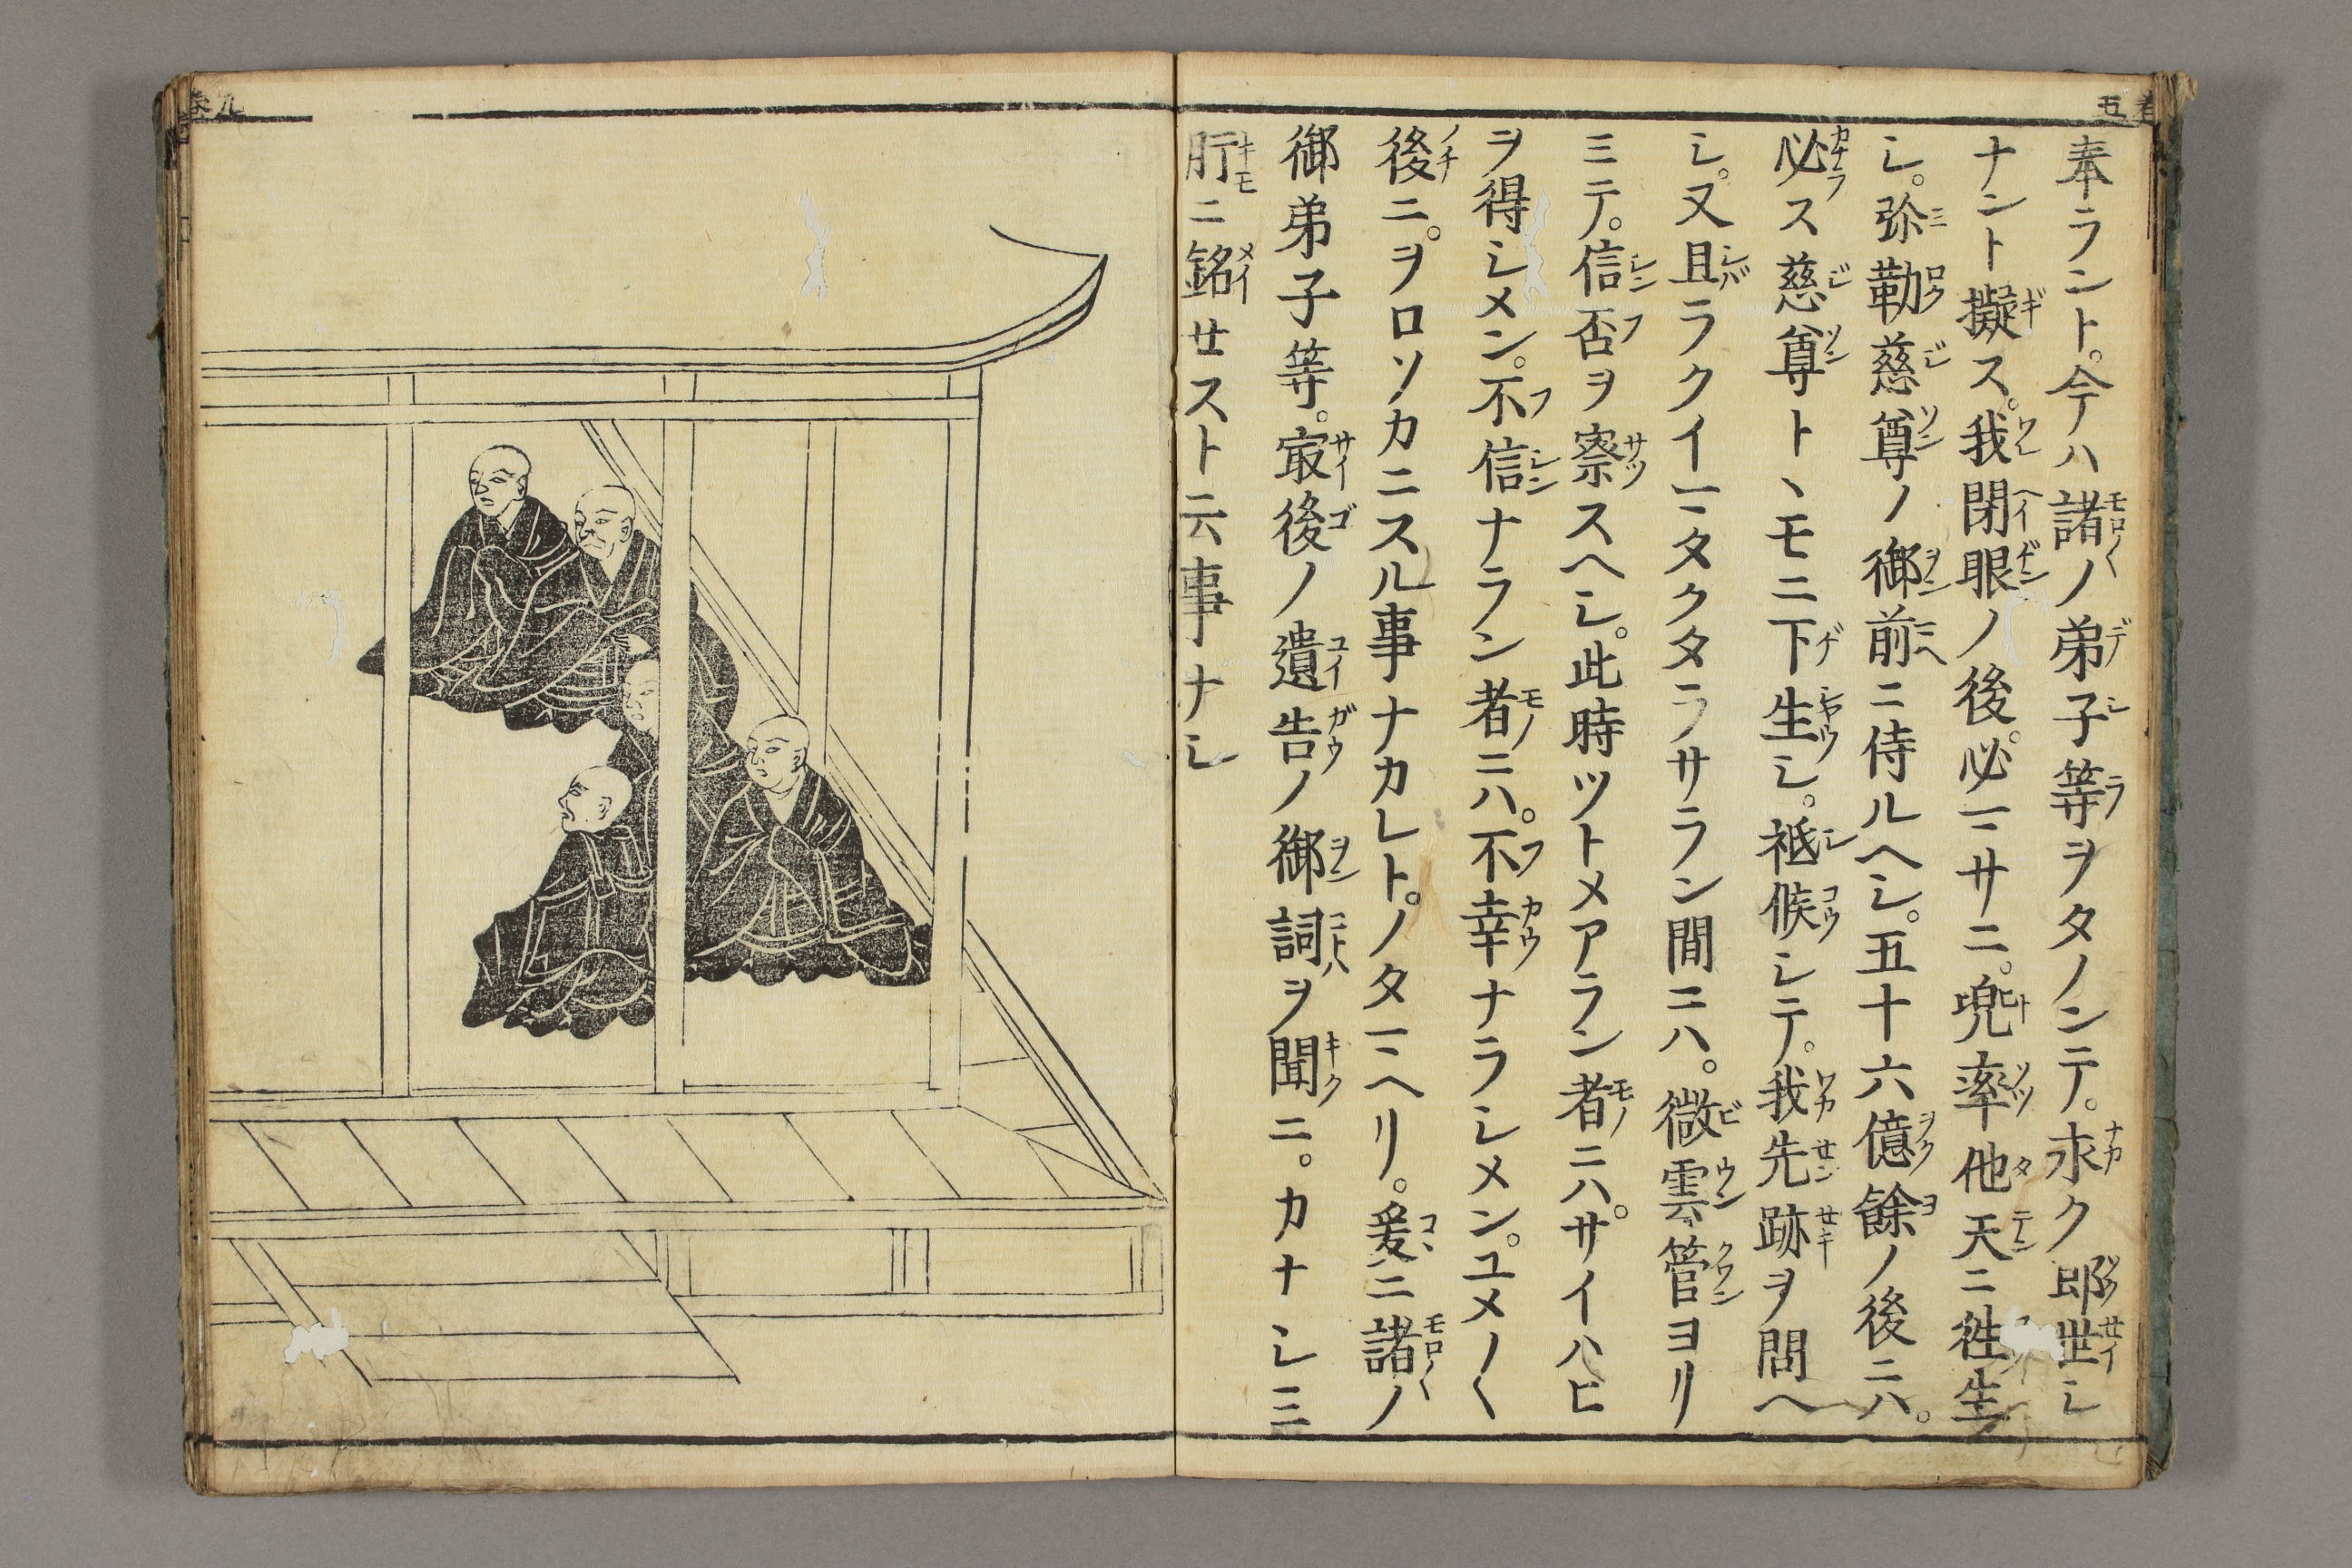 奉ラント。今ハ諸ノ弟子等ヲタノンテ。永ク即世シ
ナント擬ス。我閉眼ノ後。必マサニ。兜率他天ニ徃生
シ。弥勒慈尊ノ御前ニ侍ルヘシ。五十六億餘ノ後ニハ。
必ス慈尊トヽモニ下生シ。祗候シテ。我先跡ヲ問ヘ
シ。又且ラクイマタクタラサラン間ニハ。微雲管ヨリ
ミテ。信否ヲ察スヘシ。此時ツトメアラン者ニハ。サイハヒ
ヲ得シメン。不信ナラン者ニハ。不幸ナラシメン。ユメ〱
後ニ。ヲロソカニスル事ナカレト。ノタマヘリ。爰ニ諸ノ
御弟子等。㝡後ノ遺告ノ御詞ヲ聞ニ。カナシミ
肝ニ銘セスト云事ナシ